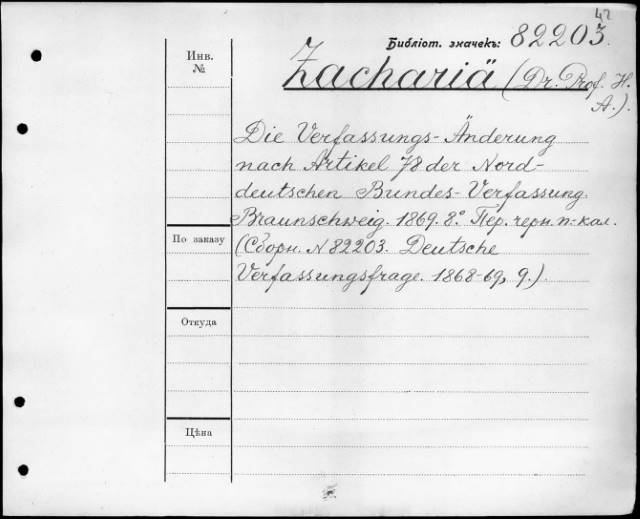 42
Библіот. значекъ: 82203.
Инв. №
Zachariä (Dr. Prof. H. A.).
Die Verfassungs-Änderung
nach Artikel 78 der Nord-
deutschen Bundes-Verfassung.
Braunschweig. 1869. 8.° Пер. черн. п.-кал.
По заказу
(Сборн. N 82203. Deutsche
Verfassungsfrage. 1868-69, 9.)
Откуда
Цѣна